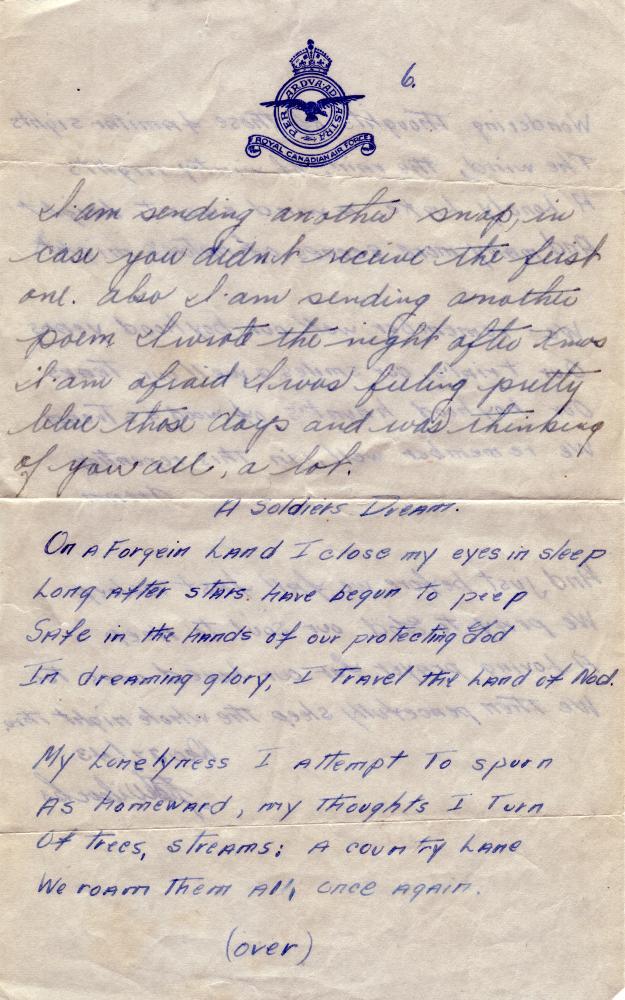 6.
PER ARDVA AD ASTRA
ROYAL CANADIAN AIR FORCE
I am sending another snap, in
case you didn't receive the first
one. also I am sending another
poem I wrote the night after Xmas
I am afraid I was feeling pretty
blue those days and was thinking
of you all, a lot.
A Soldiers Dream.
On A Forgein Land I close my eyes in sleep
Long after stars have begun to peep
Safe in the hands of our protecting God
In dreaming glory, I travel the Land of Nod.
My Lonelyness I attempt to spurn
As Homeward, my Thoughts I Turn
Of Trees, streams; A country Lane
We roam Them all, once again.
(over)